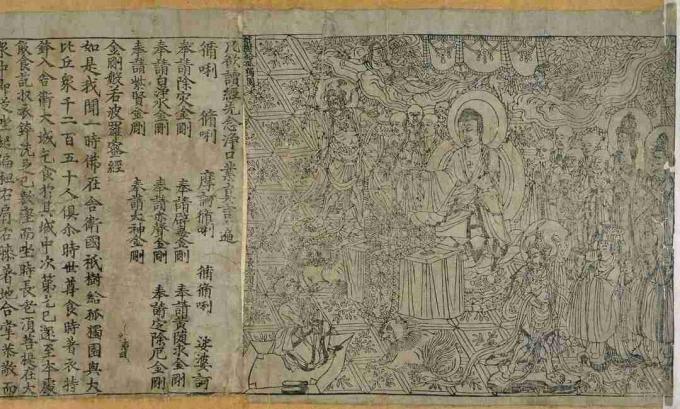 凡欲讀經先念淨口業真言一遍
脩唎 脩唎 摩訶脩唎 脩脩唎 娑婆訶
奉請除災金剛 奉請辟毒金剛 奉請黃隨求金剛
奉請白淨水金剛 奉請赤聲金剛 奉請定除厄金剛
奉請紫賢金剛 奉請大神金剛
金剛般若波羅蜜經
如是我聞一時佛在舍衛國祇樹給孤獨園與大
比丘衆千二百五十人俱尒時世尊食時著衣持
鉢入舍衛大城乞食於其城中次第乞已還至本處
飯食訖收衣鉢洗足已敷座而坐時長老須菩提在大
衆中即從座起偏袒右肩右膝著地合掌恭敬而